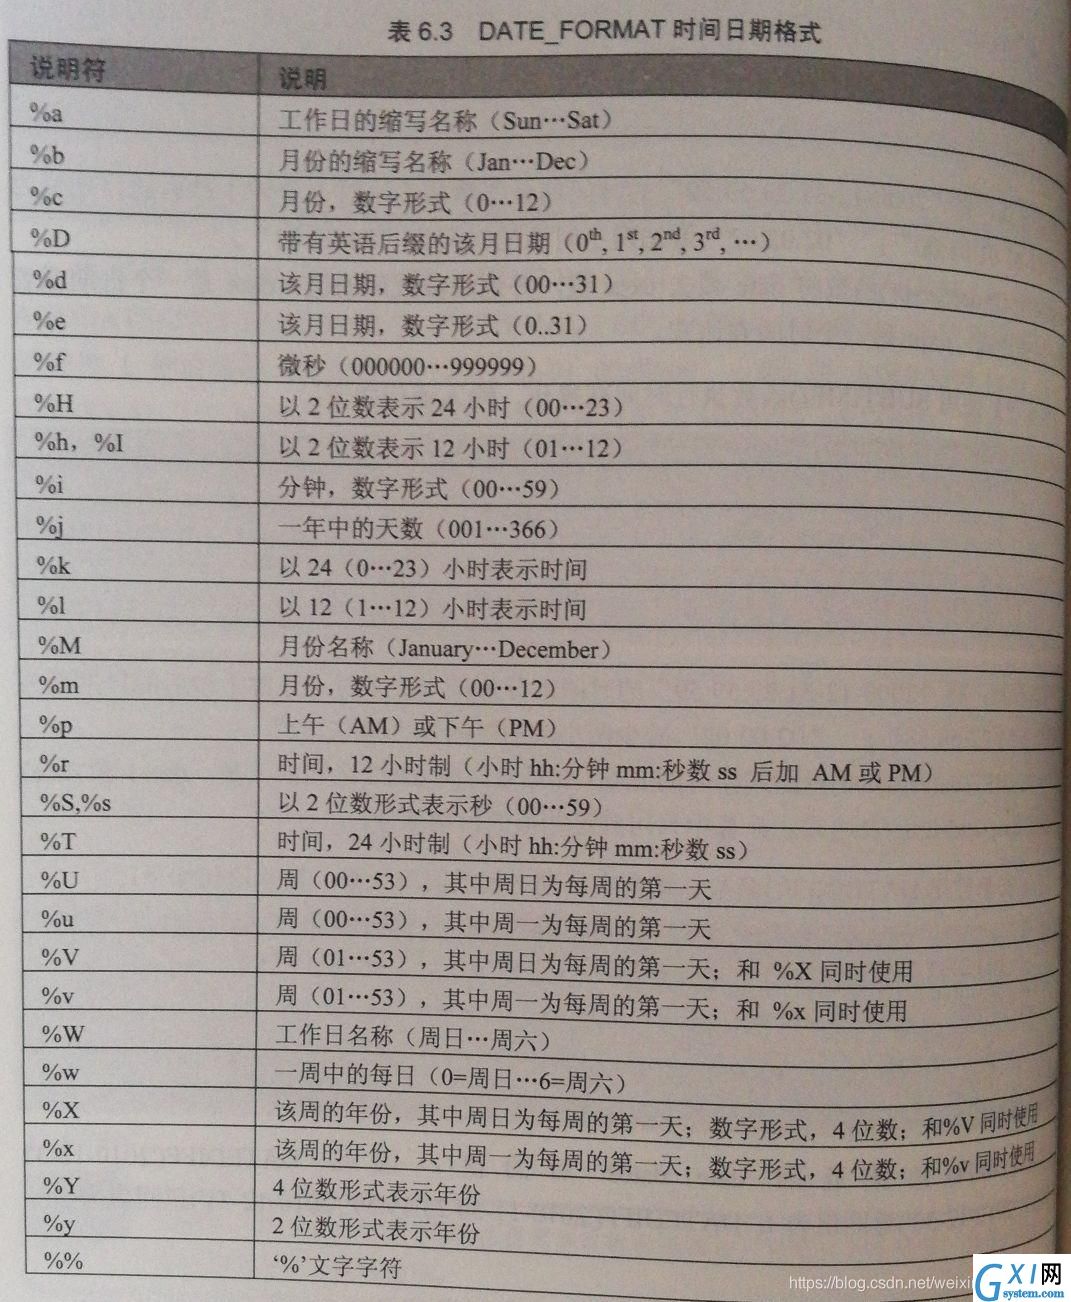 表 6.3 DATE_FORMAT 时间日期格式
说明符 说明
%a 工作日的缩写名称（Sun…Sat）
%b 月份的缩写名称（Jan…Dec）
%c 月份，数字形式（0…12）
%D 带有英语后缀的该月日期（0th, 1st, 2nd, 3rd, …）
%d 该月日期，数字形式（00…31）
%e 该月日期，数字形式（0..31）
%f 微秒（000000…999999）
%H 以 2 位数表示 24 小时（00…23）
%h，%I 以 2 位数表示 12 小时（01…12）
%i 分钟，数字形式（00…59）
%j 一年中的天数（001…366）
%k 以 24（0…23）小时表示时间
%l 以 12（1…12）小时表示时间
%M 月份名称（January…December）
%m 月份，数字形式（00…12）
%p 上午（AM）或下午（PM）
%r 时间，12 小时制（小时 hh:分钟 mm:秒数 ss 后加 AM 或 PM）
%S,%s 以 2 位数形式表示秒（00…59）
%T 时间，24 小时制（小时 hh:分钟 mm:秒数 ss）
%U 周（00…53），其中周日为每周的第一天
%u 周（00…53），其中周一为每周的第一天
%V 周（01…53），其中周日为每周的第一天；和 %X 同时使用
%v 周（01…53），其中周一为每周的第一天；和 %x 同时使用
%W 工作日名称（周日…周六）
%w 一周中的每日（0=周日…6=周六）
%X 该周的年份，其中周日为每周的第一天；数字形式，4 位数；和%V 同时使用
%x 该周的年份，其中周一为每周的第一天；数字形式，4 位数；和%v 同时使用
%Y 4 位数形式表示年份
%y 2 位数形式表示年份
%% ‘%’文字字符
https://blog.csdn.net/weixi
GXI网
system.com